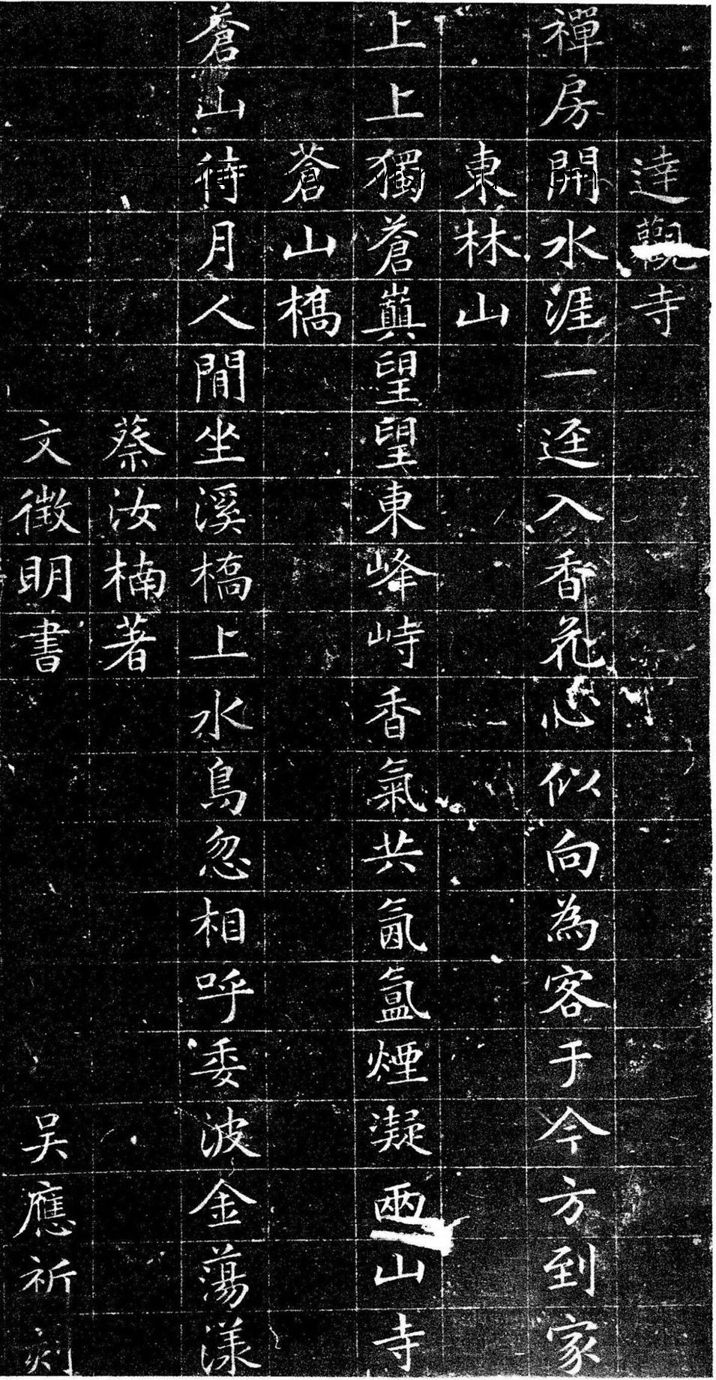 達觀寺
禪房開水涯一逕入香花心似向為客于今方到家
東林山
上上獨蒼巔望望東峰峙香氣共氤氳煙凝兩山寺
蒼山橋
蒼山待月人閒坐溪橋上水鳥忽相呼委波金蕩漾
蔡汝楠著
文徵明書 吳應祈刻